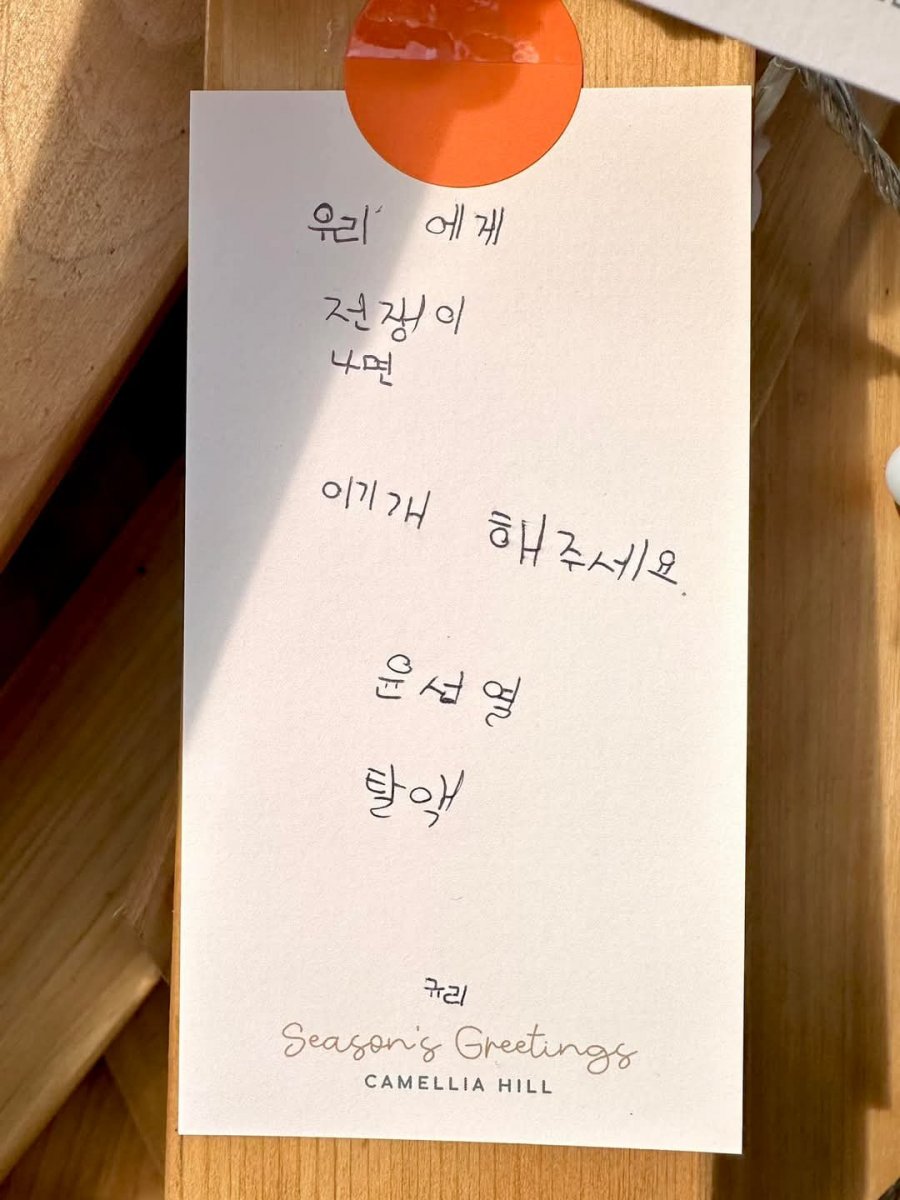 우리 에게
전쟁이
나면
이기개 해주세요.
윤선열
탈액
규리
Season's Greetings
CAMELLIA HILL